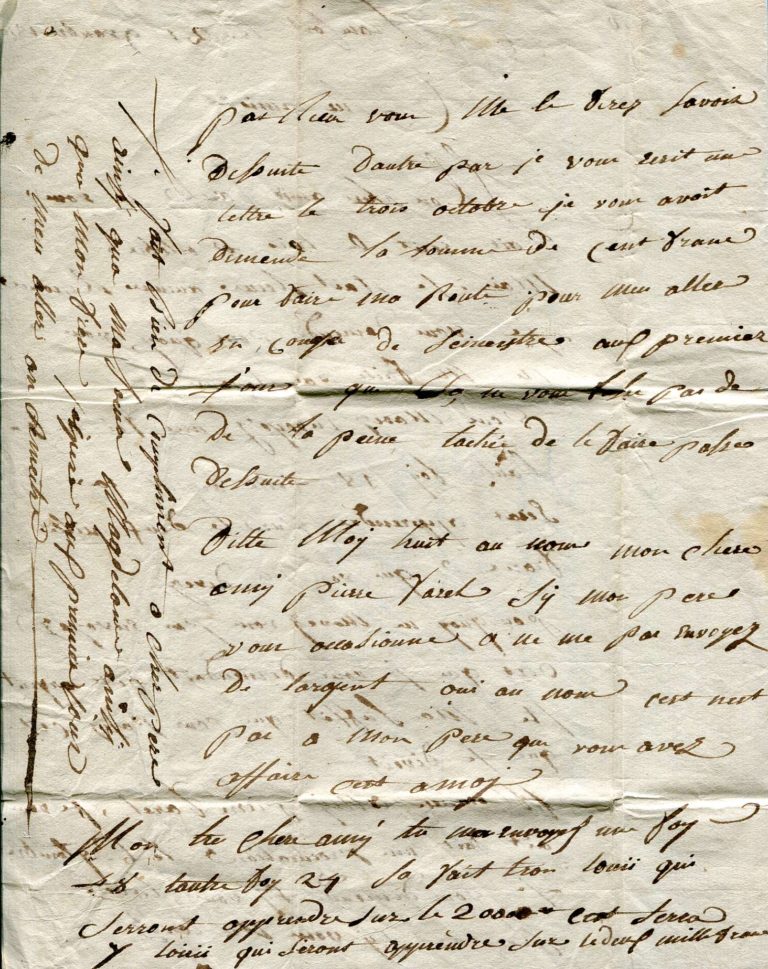 par Lieu vous) Me le ferez savoir
dessuite dautre par je vous ecrit une
lettre le trois octobre je vous avoit
demende la somme de cent franc
pour faire ma Route pour men aller
en congé de seimestre aux premier
jour que pas de
de la peine tachée de le faire passe
dessuite
Ditte Moy huit au nom mon chere
amij Pierre Varel Sij mon pere
vous occasionne a ne me pas envoyez
De largent oui au nom cest nest
pas a mon pere que vous avez
affaire cest amoj
Mon tre chere amij tu menvoyes une foy
18 lautre foy 24 sa fait tron louii qui
serront apprendre sur le 2000 cest serra
7 louii qui serons apprendre sur le deux mille franc
Je fait bien de Compliment a cher pere
ainsij que ma soeur Magdelaine ausij
que mon frere aux premier jour
de men aller on semestre